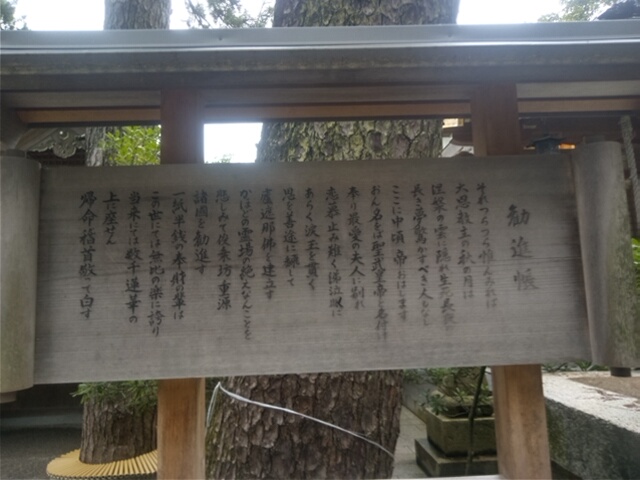 勧進帳
それつらつら惟んみれば
大恩教主の秋の月は
涅槃の雲に隠れ生死長夜の
長き夢驚かすべき人もなし
ここに中頃帝おはします
おん名をば聖武皇帝と名付け
奉り最愛の夫人に別れ
恋慕止み難く涕泣眼に
あらく涙玉を貫く
思を善途に翻して
盧遮那佛を建立す
かほどの霊場の絶えなんことを
悲しみて俊乗坊重源
諸国を勧進す
一紙半銭の奉財の輩は
この世にては無比の楽に誇り
当来にては数千蓮華の
上に座せん
帰命稽首敬って白す